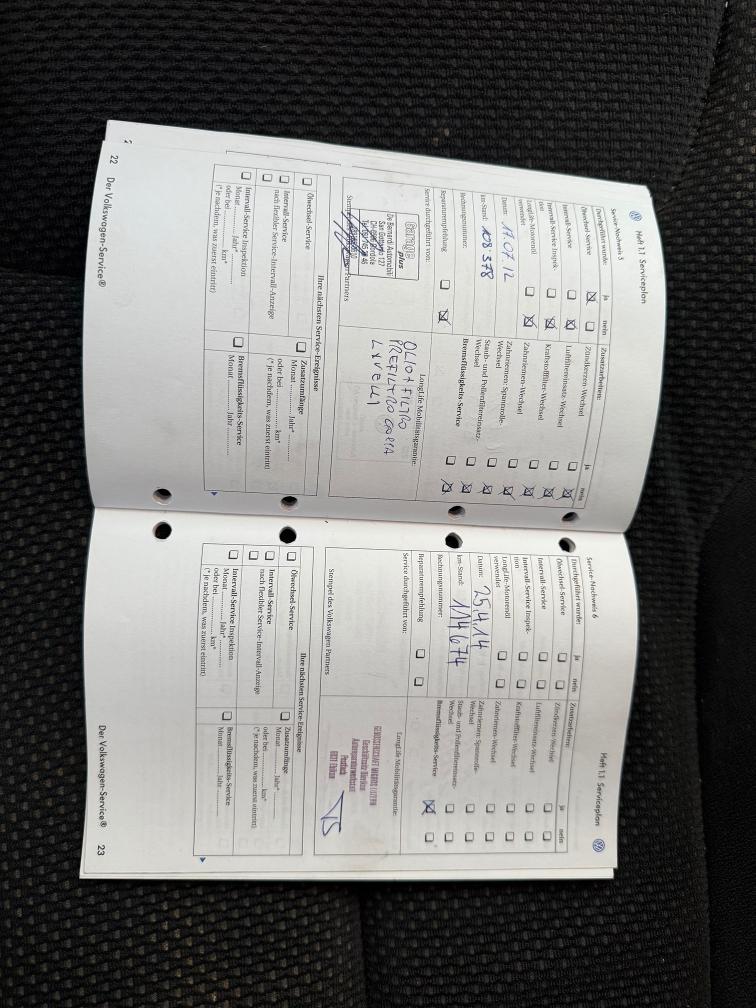 Heft 1.1 Serviceplan
Service-Nachweis 5
Durchgeführt wurde: ja nein
Ölwechsel-Service
Intervall-Service
Intervall-Service Inspek-
tion
LongLife-Motorenöl
verwendet
Datum: 17.07.12
km-Stand: 108 378
Rechnungsnummer:
Reparaturempfehlung
Service durchgeführt von:
Garage
plus
De Bernardi Automobili
San Gottardo 127
Zusatzarbeiten: ja nein
Zündkerzen-Wechsel
Luftfiltereinsatz-Wechsel
Kraftstofffilter-Wechsel
Zahnriemen-Wechsel
Zahnriemen-Spannrolle-
Wechsel
Staub- und Pollenfiltereinsatz-
Wechsel
Bremsflüssigkeits-Service
LongLife Mobilitätsgarantie:
OLIO + FILTRO
Ihre nächsten Service-Ereignisse
Ölwechsel-Service
Intervall-Service
nach flexibler Service-Intervall-Anzeige
Intervall-Service Inspektion
Monat ............ Jahr* ............
oder bei ............ km*
(* je nachdem, was zuerst eintritt)
Zusatzumfänge
Monat ............ Jahr* ............
oder bei ............ km*
(* je nachdem, was zuerst eintritt)
Bremsflüssigkeits-Service
Monat ............ Jahr ............
22 Der Volkswagen-Service®
Heft 1.1 Serviceplan
Service-Nachweis 6
Durchgeführt wurde: ja nein
Ölwechsel-Service
Intervall-Service
Intervall-Service Inspek-
tion
LongLife-Motorenöl
verwendet
Datum: 25.4.14
km-Stand: 114 674
Rechnungsnummer:
Reparaturempfehlung
Service durchgeführt von:
Stempel des Volkswagen Partners
Zusatzarbeiten: ja nein
Zündkerzen-Wechsel
Luftfiltereinsatz-Wechsel
Kraftstofffilter-Wechsel
Zahnriemen-Wechsel
Zahnriemen-Spannrolle-
Wechsel
Staub- und Pollenfiltereinsatz-
Wechsel
Bremsflüssigkeits-Service
LongLife Mobilitätsgarantie:
GENOSSENSCHAFT MIGROS LUZERN
Postfach
6031 Ebikon
Ihre nächsten Service-Ereignisse
Ölwechsel-Service
Intervall-Service
nach flexibler Service-Intervall-Anzeige
Intervall-Service Inspektion
Monat ............ Jahr* ............
oder bei ............ km*
(* je nachdem, was zuerst eintritt)
Zusatzumfänge
Monat ............ Jahr* ............
oder bei ............ km*
(* je nachdem, was zuerst eintritt)
Bremsflüssigkeits-Service
Monat ............ Jahr ............
Der Volkswagen-Service® 23